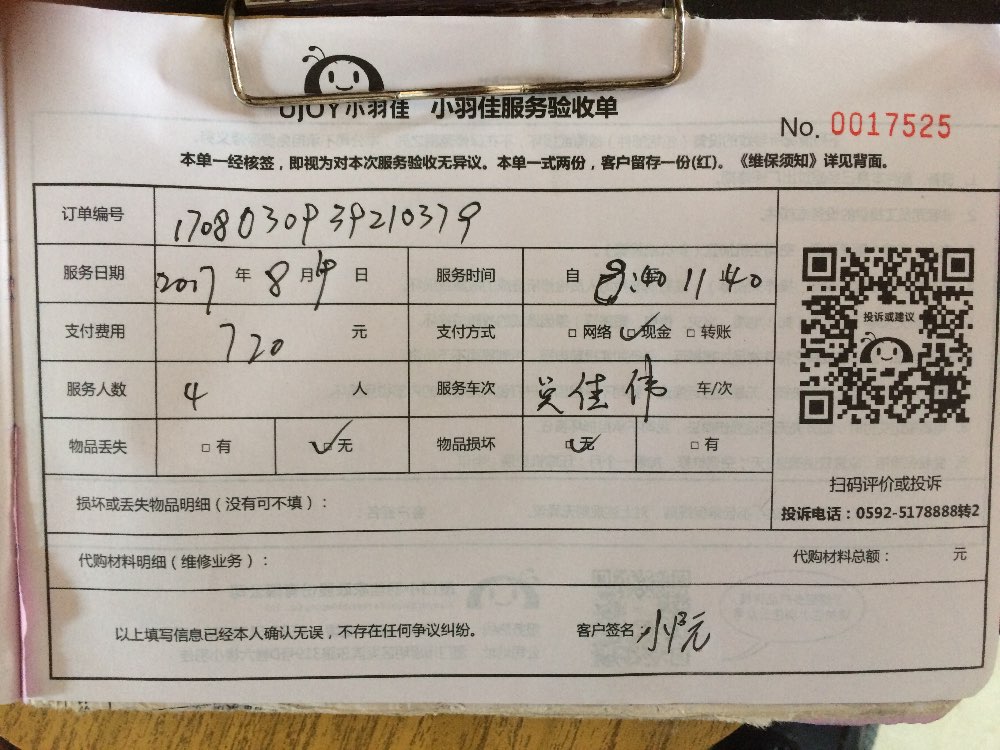 UJOY小羽佳 小羽佳服务验收单
No. 0017525
本单一经核签，即视为对本次服务验收无异议。本单一式两份，客户留存一份(红)。《维保须知》详见背面。
订单编号 1708030939210379
服务日期 2017 年 8 月 日 服务时间 自 8:40 11 40
支付费用 720 元 支付方式 □ 网络 □ 现金 □ 转账
服务人数 4 人 服务车次 吴佳伟 车/次
物品丢失 □ 有 □ 无 物品损坏 □ 无 □ 有
投诉或建议
扫码评价或投诉
投诉电话：0592-5178888转2
损坏或丢失物品明细（没有可不填）：
代购材料明细（维修业务）： 代购材料总额： 元
以上填写信息已经本人确认无误，不存在任何争议纠纷。 客户签名：